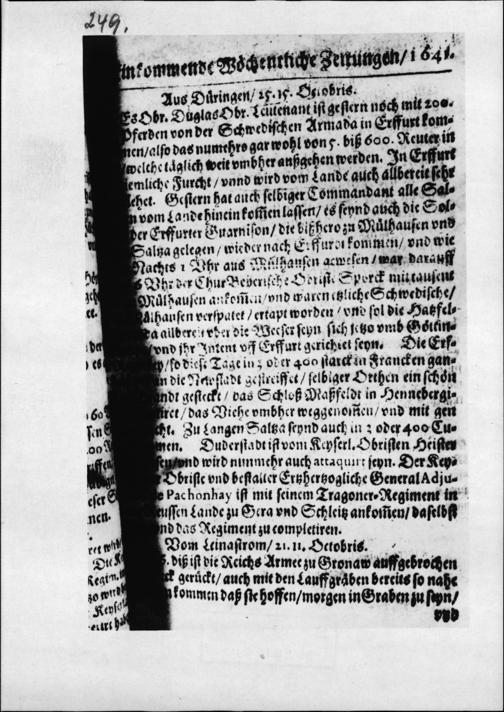 249.
inkommende Wöchentliche Zeitungen/1641.
Aus Düringen/25.15. Octobris.
Es Obr. Duglas Obr. Leutenant ist gestern noch mit 200.
Pferden von der Schwedischen Armada in Erffurt kom-
men/also das numehro gar wohl von 5. biß 600. Reuter in
welche täglich weit vmbher außgehen werden. In Erffurt
iemliche Furcht/vnnd wird vom Lande auch allbereit sehr
ehet. Gestern hat auch selbiger Commandant alle Sal-
n vom Lande hinein kom̃en lassen/es seynd auch die Sol-
der Erffurter Guarnison/die bißhero zu Mülhausen vnd
Saltza gelegen/wieder nach Erffurdt kommen/vnd wie
Nachts 1 Vhr aus Mülhausen gewesen/war darauff
Vhr der Chur Beyerische Obriste Sporck mit tausent
Mülhausen ankom̃en/vnd waren etzliche Schwedische/
ülhausen verspatet/ertapt worden/vnd sol die Hatzfel-
a allbereit vber die Weeser seyn sich jetzo vmb Göttin-
vnd jhr Intent vff Erffurt gerichtet seyn. Die Erf-
ey/so diese Tage in 3 oder 400 starck in Francken gan-
in die Newstadt gestreiffet/selbiger Orthen ein schön
ndt gesteckt/das Schloß Maßfeldt in Hennebergi-
ret/das Viehe vmbher weggenom̃en/vnd mit gen
cht. Zu Langen Saltza seynd auch in 2 oder 400 Cu-
men. Duderstadt ist vom Keyserl. Obristen Heister
sen/vnd wird nunmehr auch attaquirt seyn. Der Key-
Obriste vnd bestalter Ertzhertzogliche General Adju-
e Pachonhay ist mit seinem Tragoner-Regiment in
eussen Lande zu Gera vnd Schleitz ankom̃en/daselbst
nd das Regiment zu completiren.
Vom Leinastrom/21.11. Octobris.
. diß ist die Reichs Armee zu Gronaw auffgebrochen
ck gerückt/auch mit den Lauffgräben bereits so nahe
kommen daß sie hoffen/morgen in Graben zu seyn/
vnd